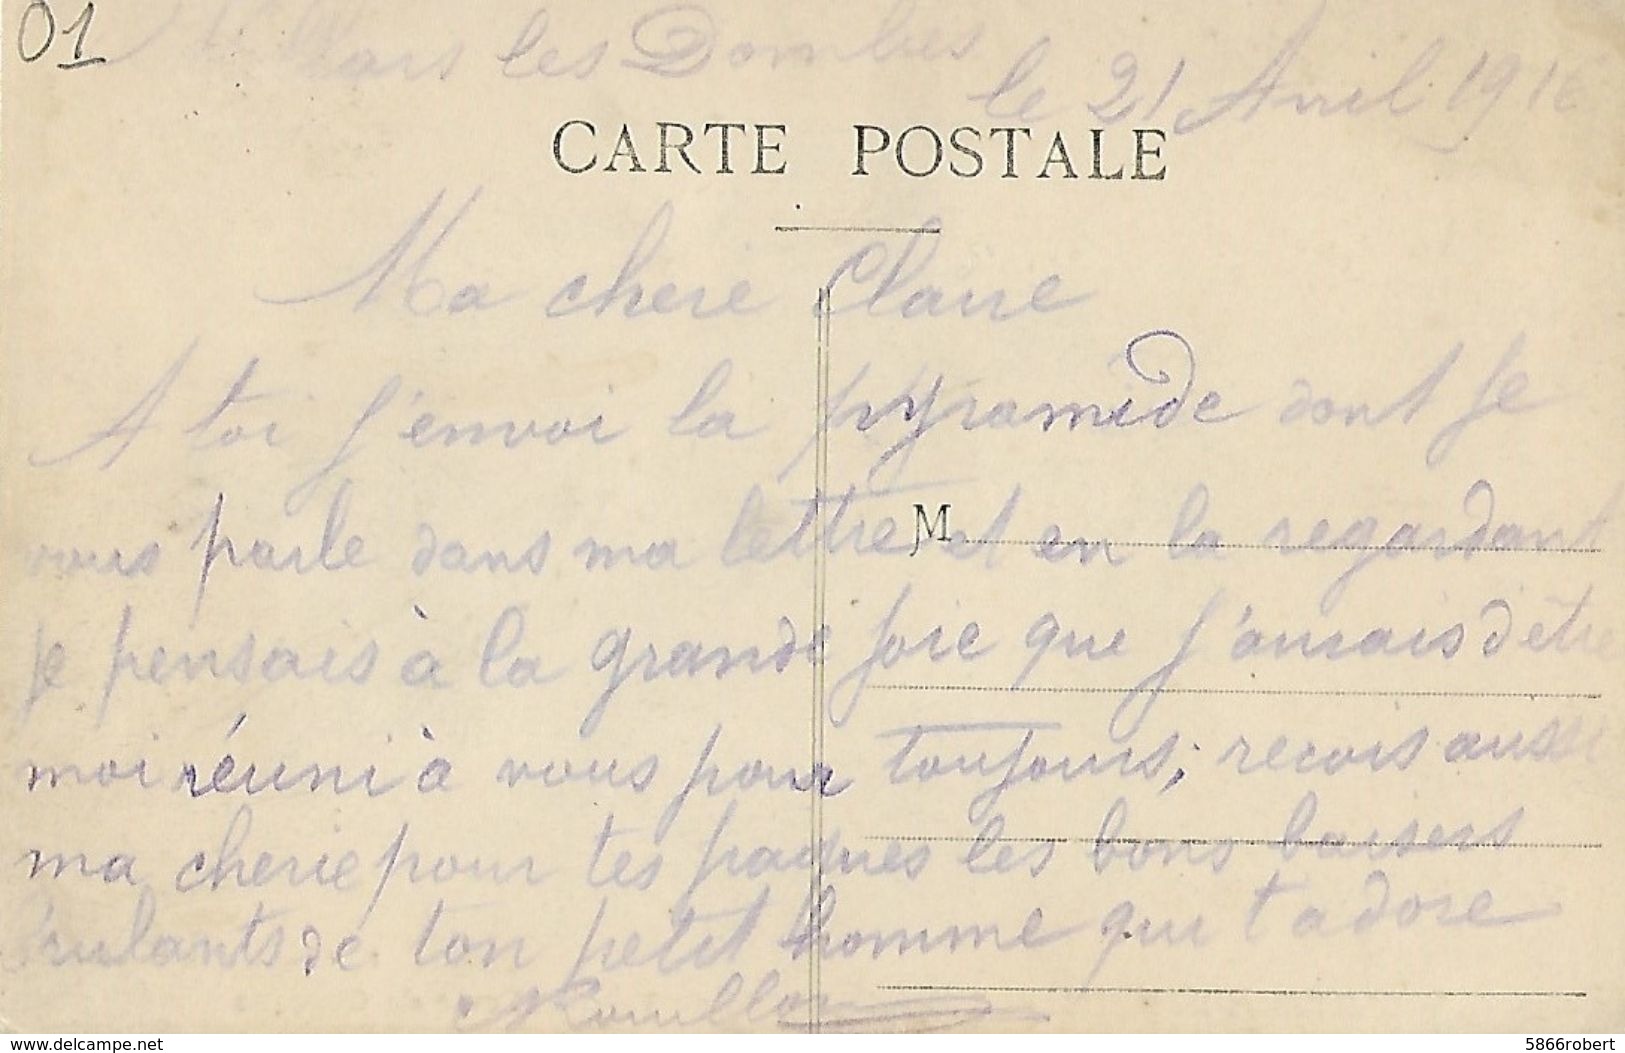 01
Villars les Dombes
le 21 Avril 1916
CARTE POSTALE
Ma cherie Claire
A toi j'envoi la pyramide dont je
vous parle dans ma lettre et en la regardant
M
je pensais à la grande joie que j'aurais d'être
moi réuni à vous pour toujours; recois aussi
ma cherie pour tes paques les bons baisers
brulants de ton petit homme qui t'adore
delcampe.net
5866robert